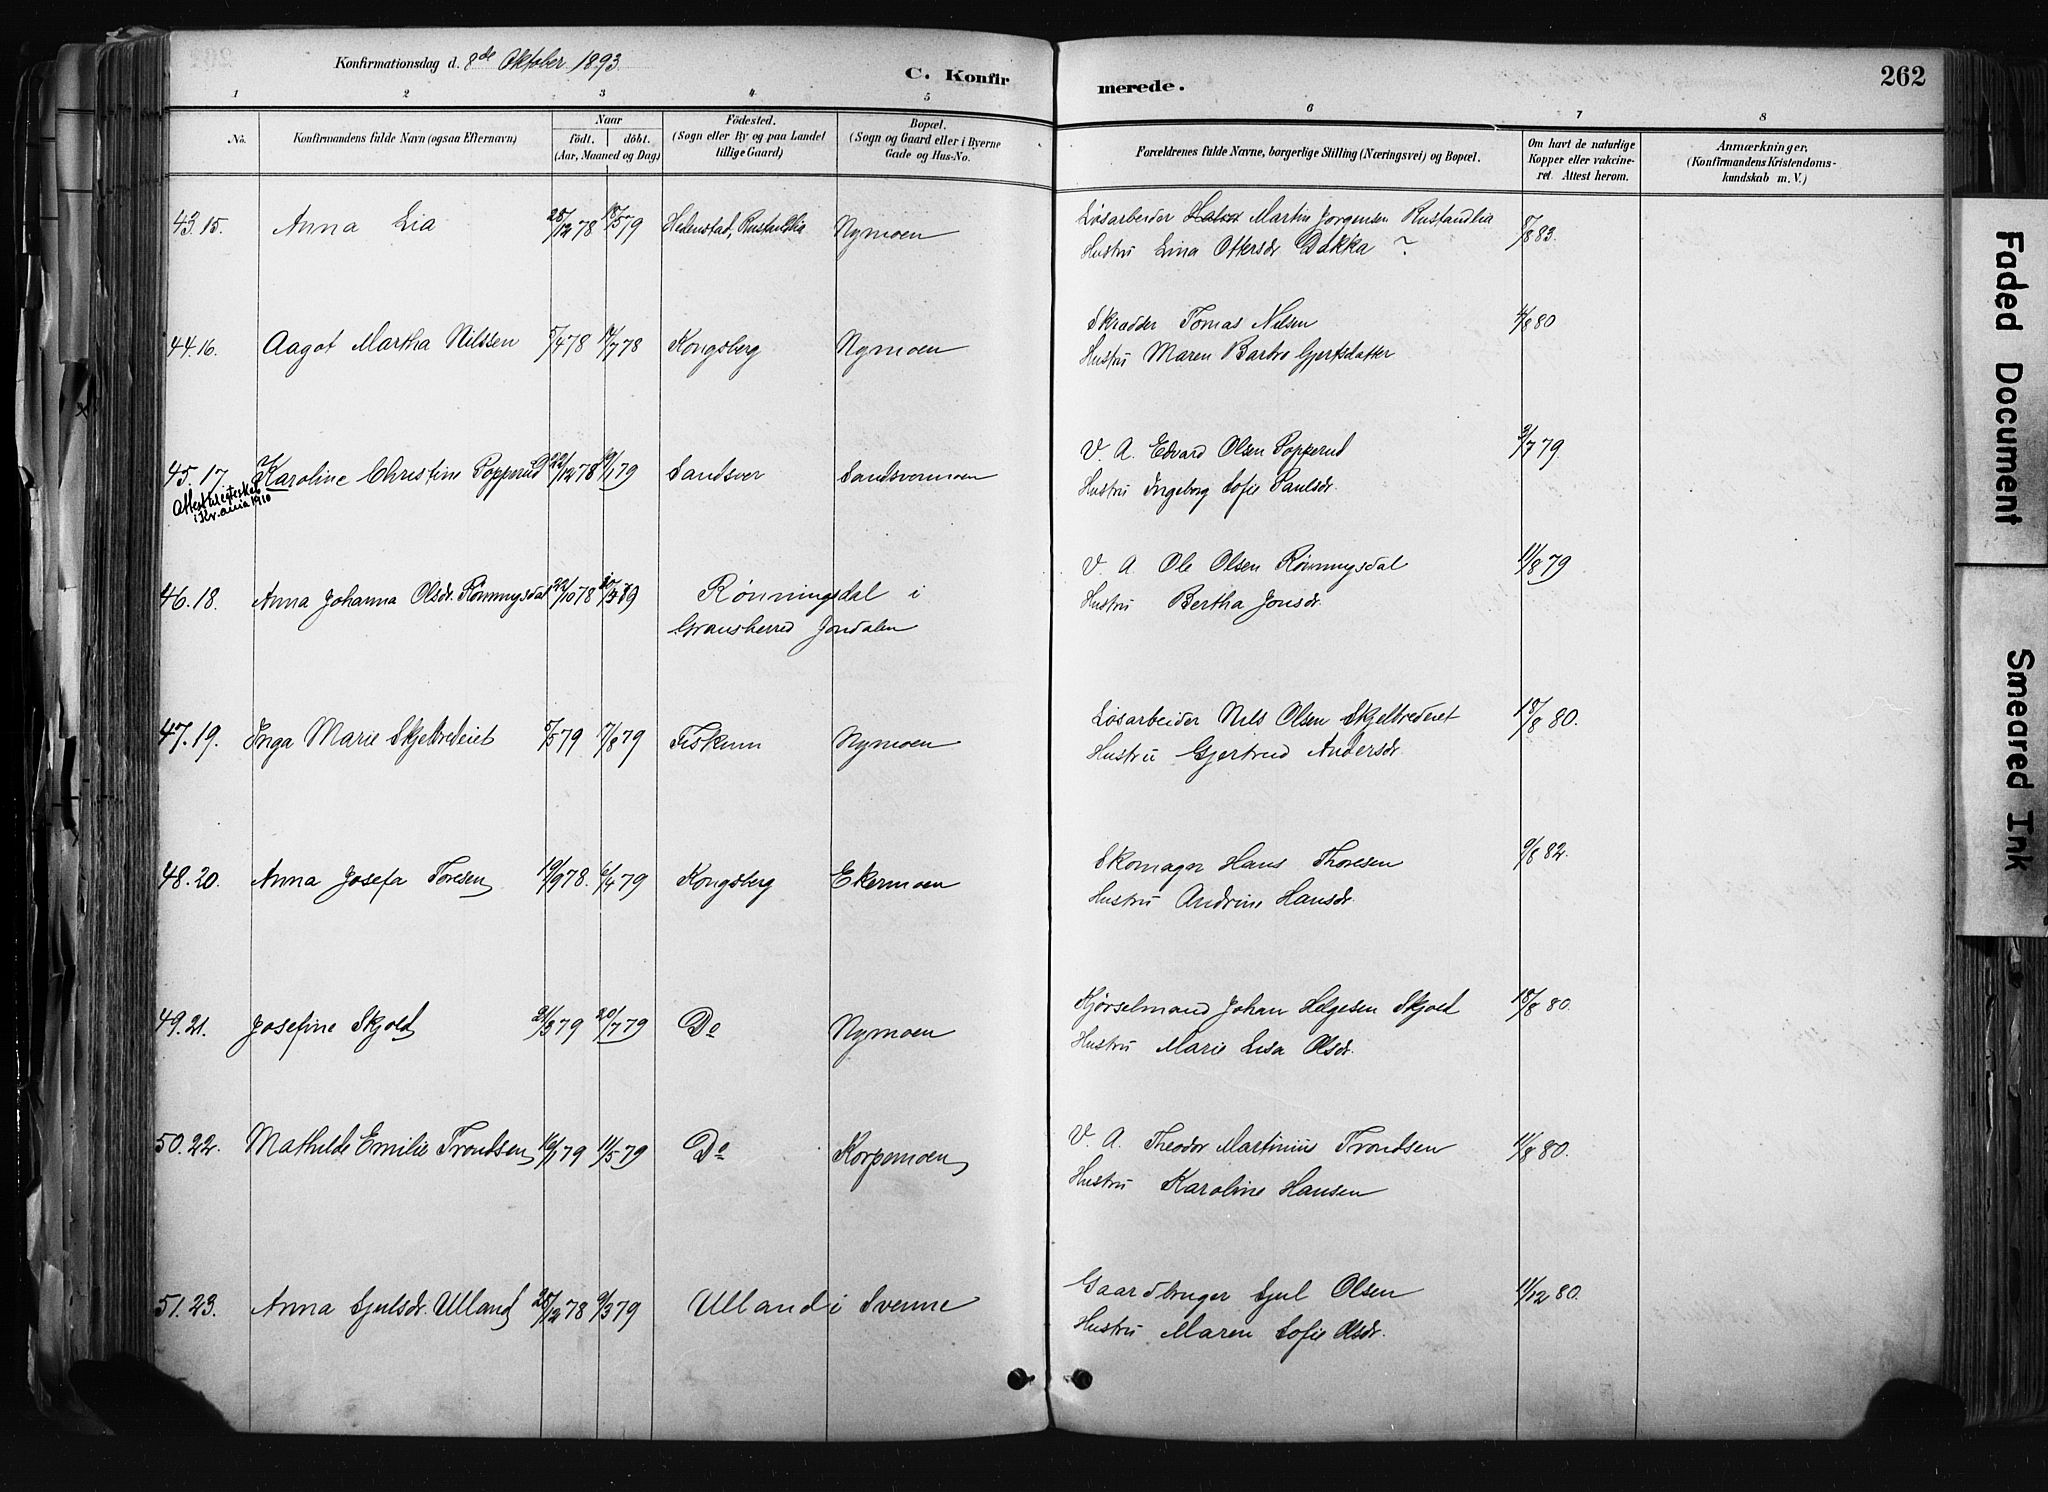 Konfirmationsdag d. 8de Oktober 1893.
C. Konfirmerede.
262
1 2 3 4 5 6 7 8
No. Konfirmandens fulde Navn (ogsaa Efternavn) Naar födt. döbt. (Aar, Maaned og Dag) Födested. (Sogn eller By og paa Landet tillige Gaard) Bopæl. (Sogn og Gaard eller i Byerne Gade og Hus-No. Forældrenes fulde Navne, borgerlige Stilling (Næringsvei) og Bopæl. Om havt de naturlige Kopper eller vakcineret. Attest herom. Anmærkninger, (Konfirmandens Kristendomskundskab m. V.)
43. 15. Anna Lia 28/12 78 18/5 79 Hedenstad, Rustandlia Nymoen Løsarbeider Martin Jørgensen Rustandlia 8/8 83.
Hustru Lina Ottersdr Bakka ?
44. 16. Aagot Martha Nilssen 5/4 78 14/7 78 Kongsberg Nymoen Skrædder Tomas Nilsen 4/8 80
Hustru Maren Barbro Gjertsdatter
45. 17. Karoline Christine Popperud 22/12 78 19/1 79 Sandsver Sandsvermoen V. A. Edvard Olsen Popperud 3/7 79
Attest utstedt i Kr.ania 1910
Hustru Ingeborg Sofie Paulsdr.
46. 18. Anna Johanna Olsdr. Rønningsdal 22/10 78 Rønningsdal i V. A Ole Olsen Rønningsdal 11/8 79
Gransherred Jondalen Hustru Bertha Jonsdr.
47. 19. Inga Marie Skjelbredeiet 5/5 79 17/8 79 Fiskum Nymoen Løsarbeider Nils Olsen Skjelbredeiet 18/8 80.
Hustru Gjertrud Andersdr.
48. 20. Anna Josefa Toresen 19/9 78. 6/4 79 Kongsberg Ekermoen Skomager Hans Thoresen 9/8 82.
Hustru Andrine Hansdr.
49. 21. Josefine Skjold 21/3 79 20/7 79 Do Nymoen Kjørselmand Johan Helgesen Skjold 18/8 80.
Hustru Marie Lisa Olsdr.
50. 22. Mathilde Emilie Trondsen 16/1 79 11/5 79 Do Korpemoen V. A. Theodor Martinius Trondsen 11/8 80.
Hustru Karoline Hansen
51. 23. Anna Sjulsdr. Ulland 28/12 78 9/3 79 Ulland i Svenne Gaardbruger Sjul Olsen 11/12 80.
Hustru Maren Sofie Olsdr.
Faded Document
Smeared Ink